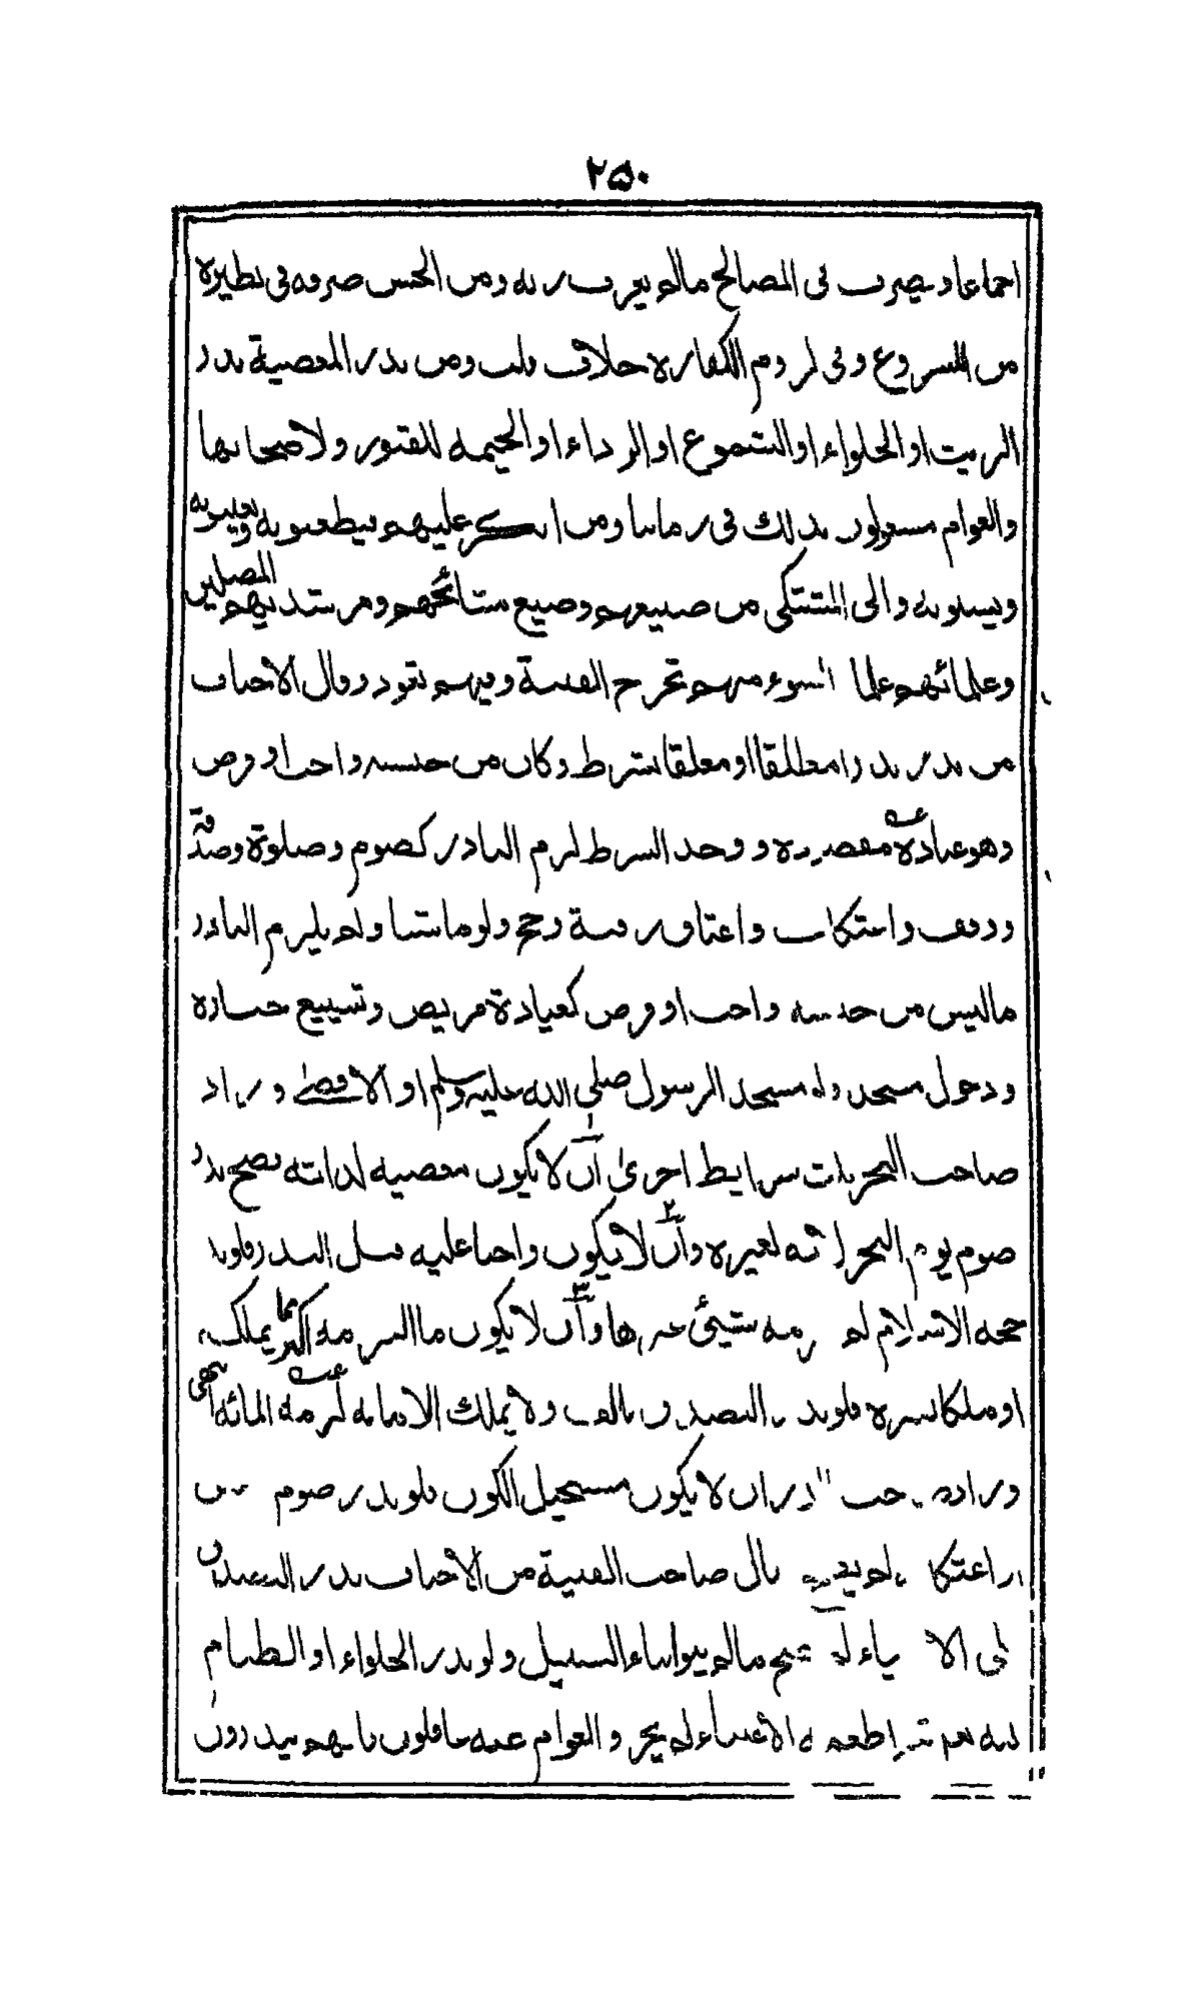 ٢٥٠
اجماعا ويصرف فى المصالح مالم يعرف ربه ومن الجنس صرفه فى نظيره
من المشروع وفى لزوم الكفارة خلاف قلت ومن نذر المعصية نذر
الزيت او الحلواء او الشموع او الرداء او الخيمة للقبور ولاصحابها
والعوام مبتلون بذلك فى زماننا ومن انكر عليهم يطعنونه ويعيبونه
ويسبونه والى المشتكى من صنيعهم وصنيع مشائخهم ومرشديهم المضلين
وعلمائهم علماء السوء منهم تخرج الفتنة وفيهم تعود وقال الاحناف
من نذر نذرا مطلقا او معلقا بشرط وكان من جنسه واجب او فرض
وهو عبادة مقصودة ووجد الشرط لزم الناذر كصوم وصلوة وصدقة
ووقف واعتكاف واعتاق رقبة وحج ولو ماشيا ولم يلزم الناذر
ماليس من جنسه واجب او فرض كعيادة مريض وتشييع جنازة
ودخول مسجد ولو مسجد الرسول صلى الله عليه وسلم او الاقصى وزاد
صاحب البحر بات شرايط اخرى ان لا يكون معصية لذاته فصح نذر
صوم يوم النحر لانه لغيره وان لا يكون واجبا عليه قبل النذر فلو نذر
حجة الاسلام لم يلزمه شيئ غيرها وان لا يكون ما التزمه اكثر مما يملكه
او ملكا لغيره فلو نذر التصدق بالف ولا يملك الا مائة لزمه المائة انتهى
وزاد صاحب ان لا يكون مستحيل الكون فلو نذر صوم امس
او اعتكافه لم يصح قال صاحب القنية من الاحناف نذر التصدق
على الاغنياء لم يصح مالم ينو ابناء السبيل ولو نذر الحلواء او الطعام
اطعمه الاغنياء لم يجز والعوام عنه غافلون فانهم ينذرون